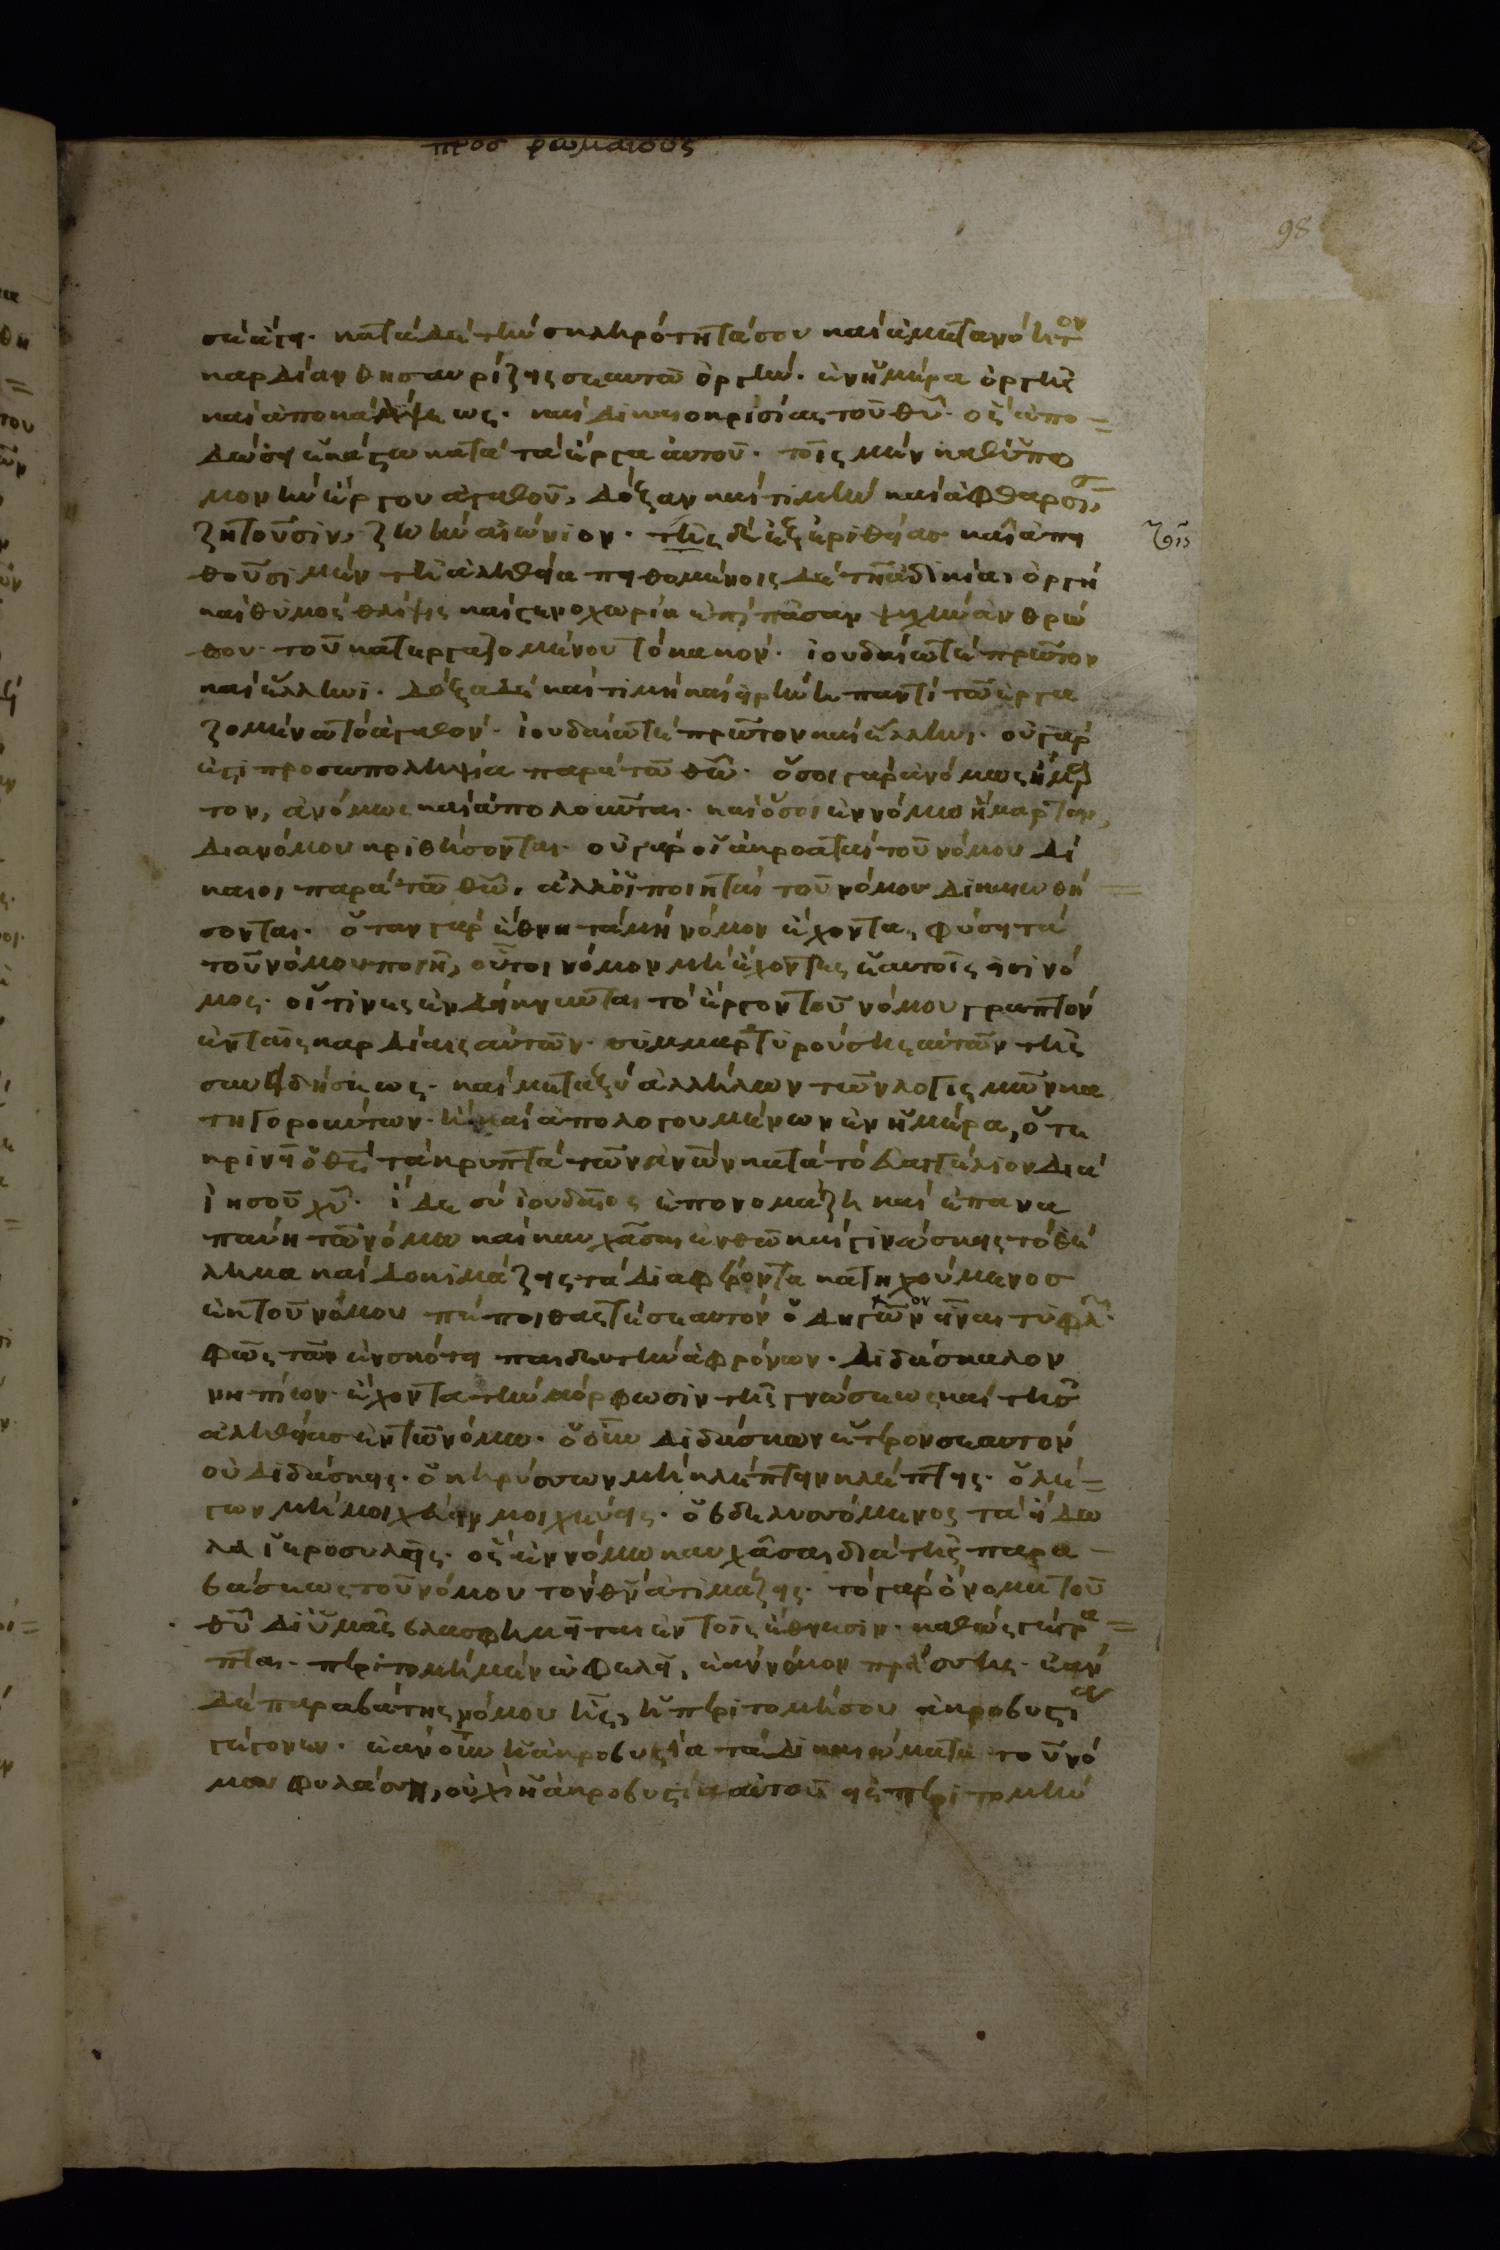 προσ ρωμαιους
98
σε ἄγει· κατὰ δὲ τὴν σκληρότητά σου καὶ ἀμετανόητον
καρδίαν θησαυρίζεις σεαυτῶ ὀργὴν· ἐν ἡμέρα ὀργῆς
καὶ ἀποκαλύψεως· καὶ δικαιοκρισίας τοῦ θῦ· ὃς ἀπο
δώσει ἑκάστω κατὰ τὰ ἔργα αὐτοῦ· τοῖς μὲν καθ ὑπο
μονὴν ἔργου ἀγαθοῦ, δόξαν καὶ τιμὴν καὶ ἀφθαρσίαν
ζητοῦσιν, ζωὴν αἰώνιον· τῆς δὲ ἐξ ἐριθείας καὶ ἀπει
θοῦσι μὲν τῆ ἀληθεία πειθομένοις δὲ τῆ ἀδικία, ὀργὴ
καὶ θυμὸς θλίψις καὶ στενοχωρία ἐπὶ πᾶσαν ψυχὴν ἀνθρώ
που τοῦ κατεργαζομένου τὸ κακόν· ἰουδαίω τὲ πρῶτον
καὶ ἕλληνι· δόξα δὲ καὶ τιμὴ καὶ εἰρήνη παντὶ τῶ ἐργα
ζομένω τὸ ἀγαθόν· ἰουδαίω τὲ πρῶτον καὶ ἕλληνι· οὐ γάρ
ἐστι προσωποληψία παρὰ τῶ θῶ· ὅσοι γὰρ ἀνόμως ἥμαρ
τον, ἀνόμως καὶ ἀπολοῦνται· καὶ ὅσοι ἐν νόμω ἥμαρτον,
διὰ νόμου κριθήσονται· οὐ γὰρ οἱ ἀκροαταὶ τοῦ νόμου δί
καιοι παρὰ τῶ θῶ, ἀλλ οἱ ποιηταὶ τοῦ νόμου δικαιωθή
σονται· ὅταν γὰρ ἔθνη τὰ μὴ νόμον ἔχοντα, φύσει τὰ
τοῦ νόμου ποιῆ, οὗτοι νόμον μὴ ἔχοντες ἑαυτοῖς εἰσὶ νό
μος· οἵτινες ἐνδείκνυνται τὸ ἔργον τοῦ νόμου γραπτὸν
ἐν ταῖς καρδίαις αὐτῶν· συμμαρτυρούσης αὐτῶν τῆς
συνειδήσεως· καὶ μεταξὺ ἀλλήλων τῶν λογισμῶν κα
τηγορούντων· ἢ καὶ ἀπολογουμένων ἐν ἡμέρα, ὅτε
κρινεῖ ὁ θς τὰ κρυπτὰ τῶν ἀνων κατὰ τὸ εὐαγγέλιον διὰ
ἰησοῦ χῦ· ἴδε σὺ ἰουδαῖος ἐπονομάζη καὶ ἐπανα
παύη τῶ νόμω καὶ καυχᾶσαι ἐν θῶ καὶ γινώσκεις τὸ θέ
λημα καὶ δοκιμάζεις τὰ διαφέροντα κατηχούμενοσ
ἐκ τοῦ νόμου πέποιθας τὲ σεαυτὸν ὁδηγὸν εἶναι τυφλῶν·
φῶς τῶν ἐν σκότει παιδευτὴν ἀφρόνων· διδάσκαλον
νηπίων ἔχοντα τὴν μόρφωσιν τῆς γνώσεως καὶ τῆς
ἀληθείας ἐν τῶ νόμω· ὁ οὖν διδάσκων ἕτερον σεαυτὸν
οὐ διδάσκεις· ὁ κηρύσσων μὴ κλέπτειν κλέπτεις· ὁ λέ
γων μὴ μοιχεύειν μοιχεύεις· ὁ βδελυσσόμενος τὰ εἴδω
λα ἱεροσυλεῖς· ὃς ἐν νόμω καυχᾶσαι διὰ τῆς παρα
βάσεως τοῦ νόμου τὸν θν ἀτιμάζεις· τὸ γὰρ ὄνομα τοῦ
θῦ δι ὑμᾶς βλασφημεῖται ἐν τοῖς ἔθνεσιν· καθὼς γέγρα
πται· περιτομὴ μὲν ὠφελεῖ, ἐὰν νόμον πράσσης· ἐὰν
δὲ παραβάτης νόμου ῆς, ἡ περιτομή σου ἀκροβυστία
γέγονεν· ἐὰν οὖν ἡ ἀκροβυστία τὰ δικαιώματα τοῦ νό
μου φυλάσση, οὐχὶ ἡ ἀκροβυστία αὐτοῦ εἰς περιτομὴν